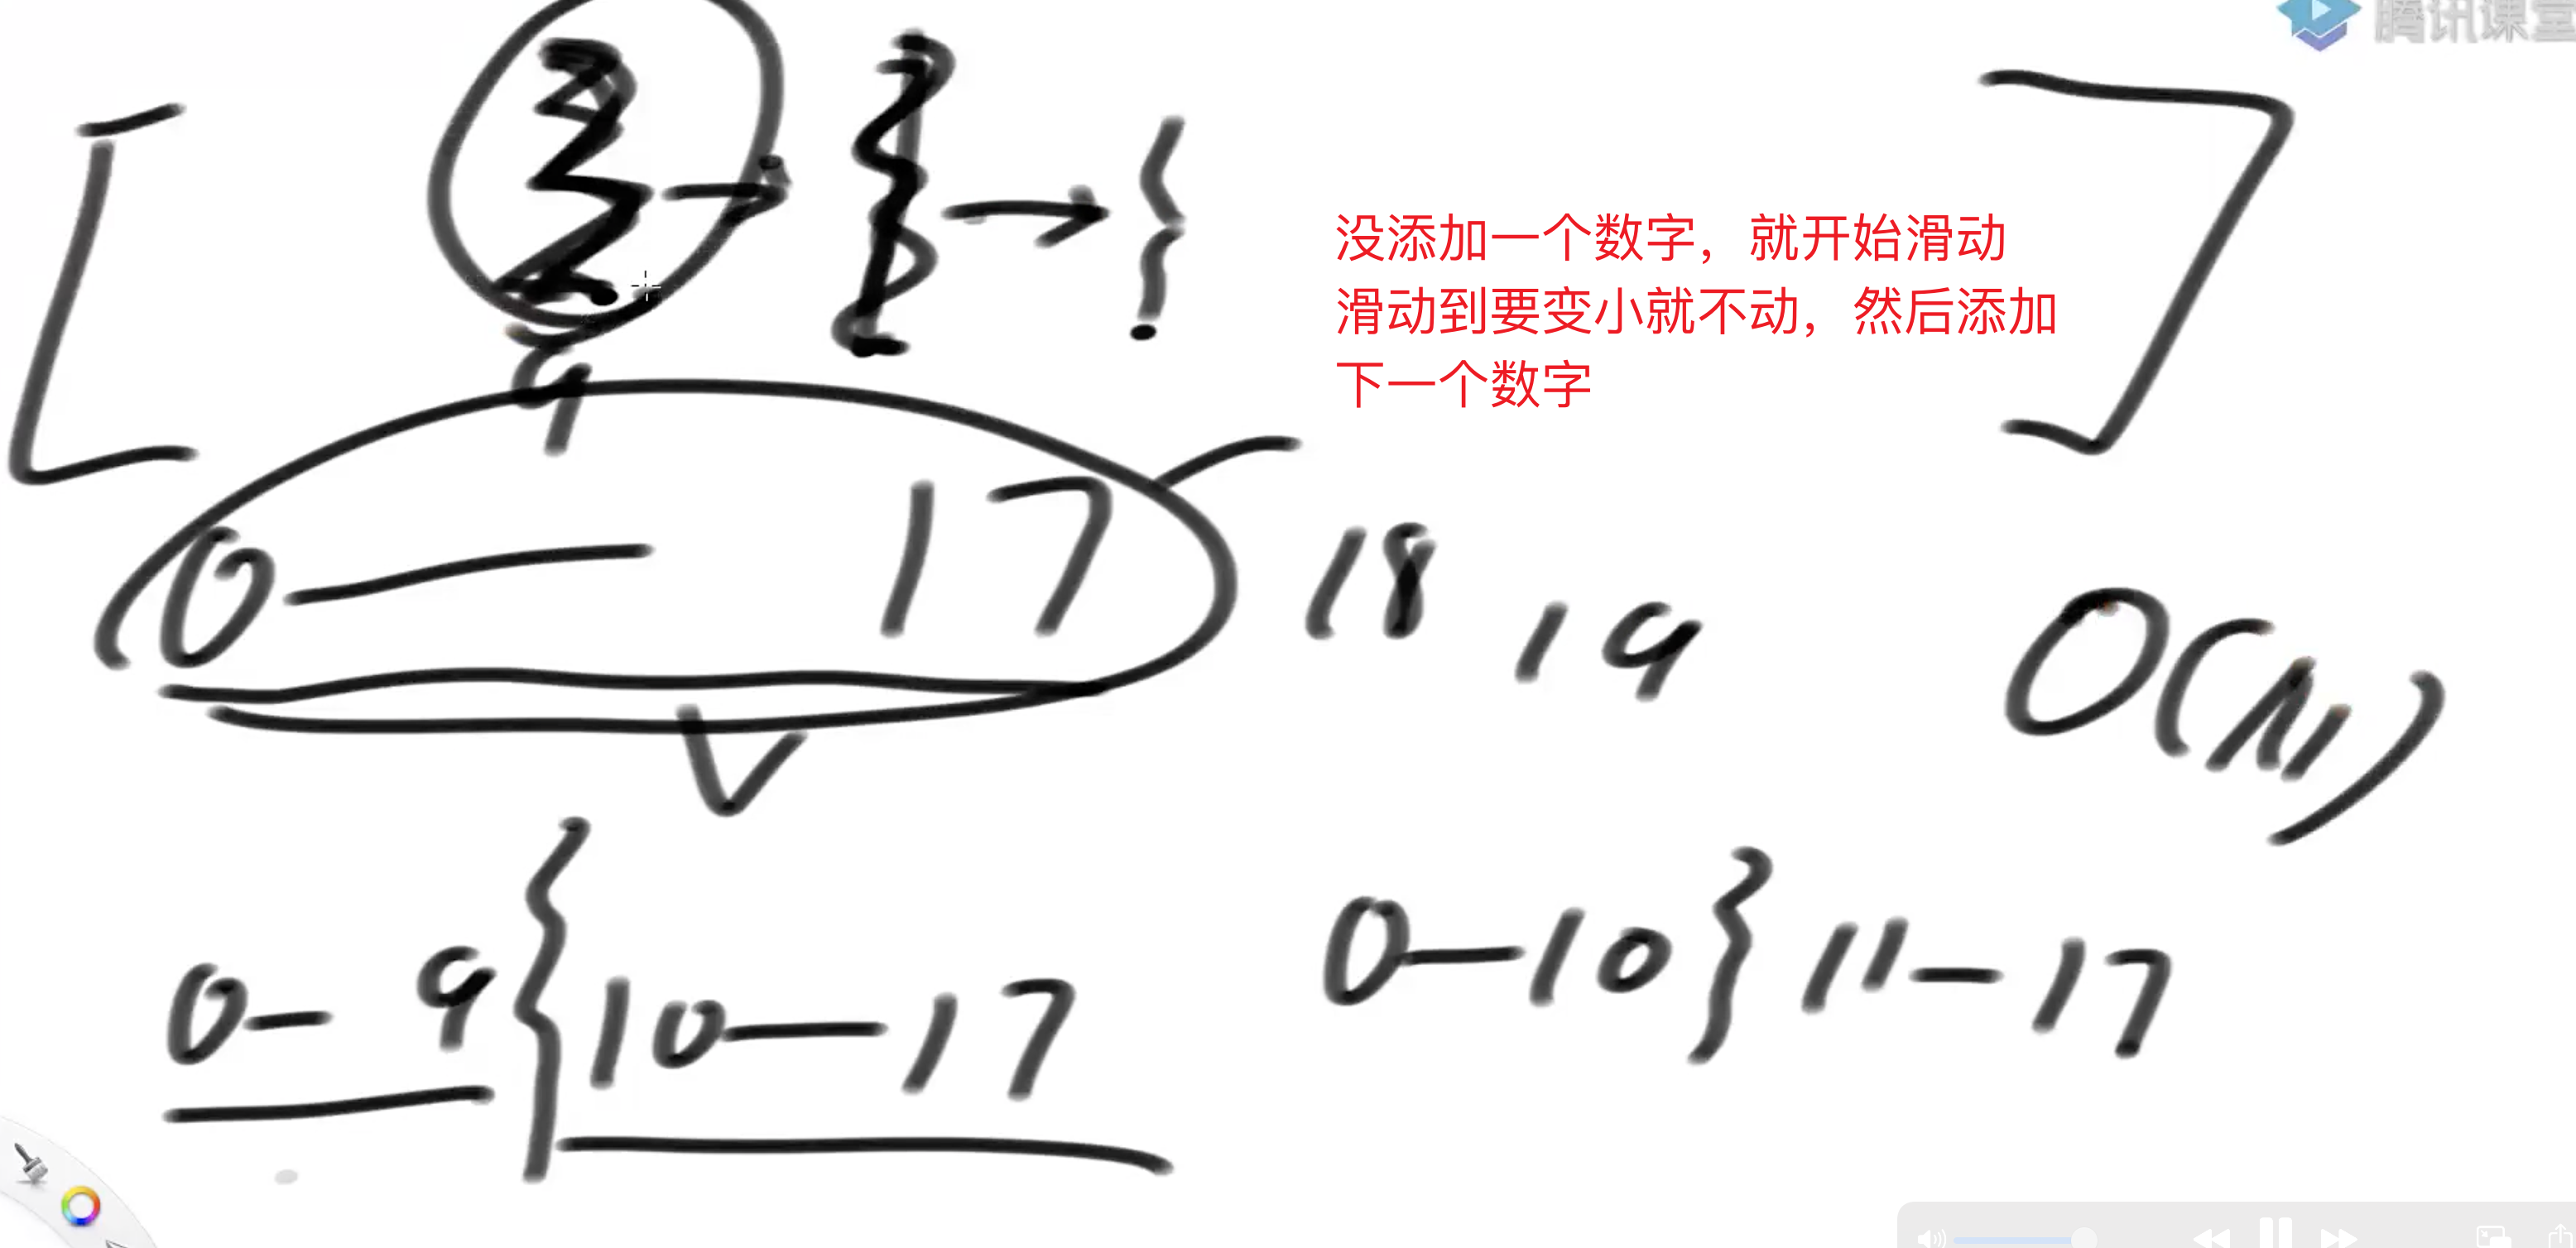 腾讯课堂
没添加一个数字，就开始滑动
滑动到要变小就不动，然后添加
下一个数字
9
0 — 17 18 19
O(N)
0-9 } 10-17
0-10 } 11-17